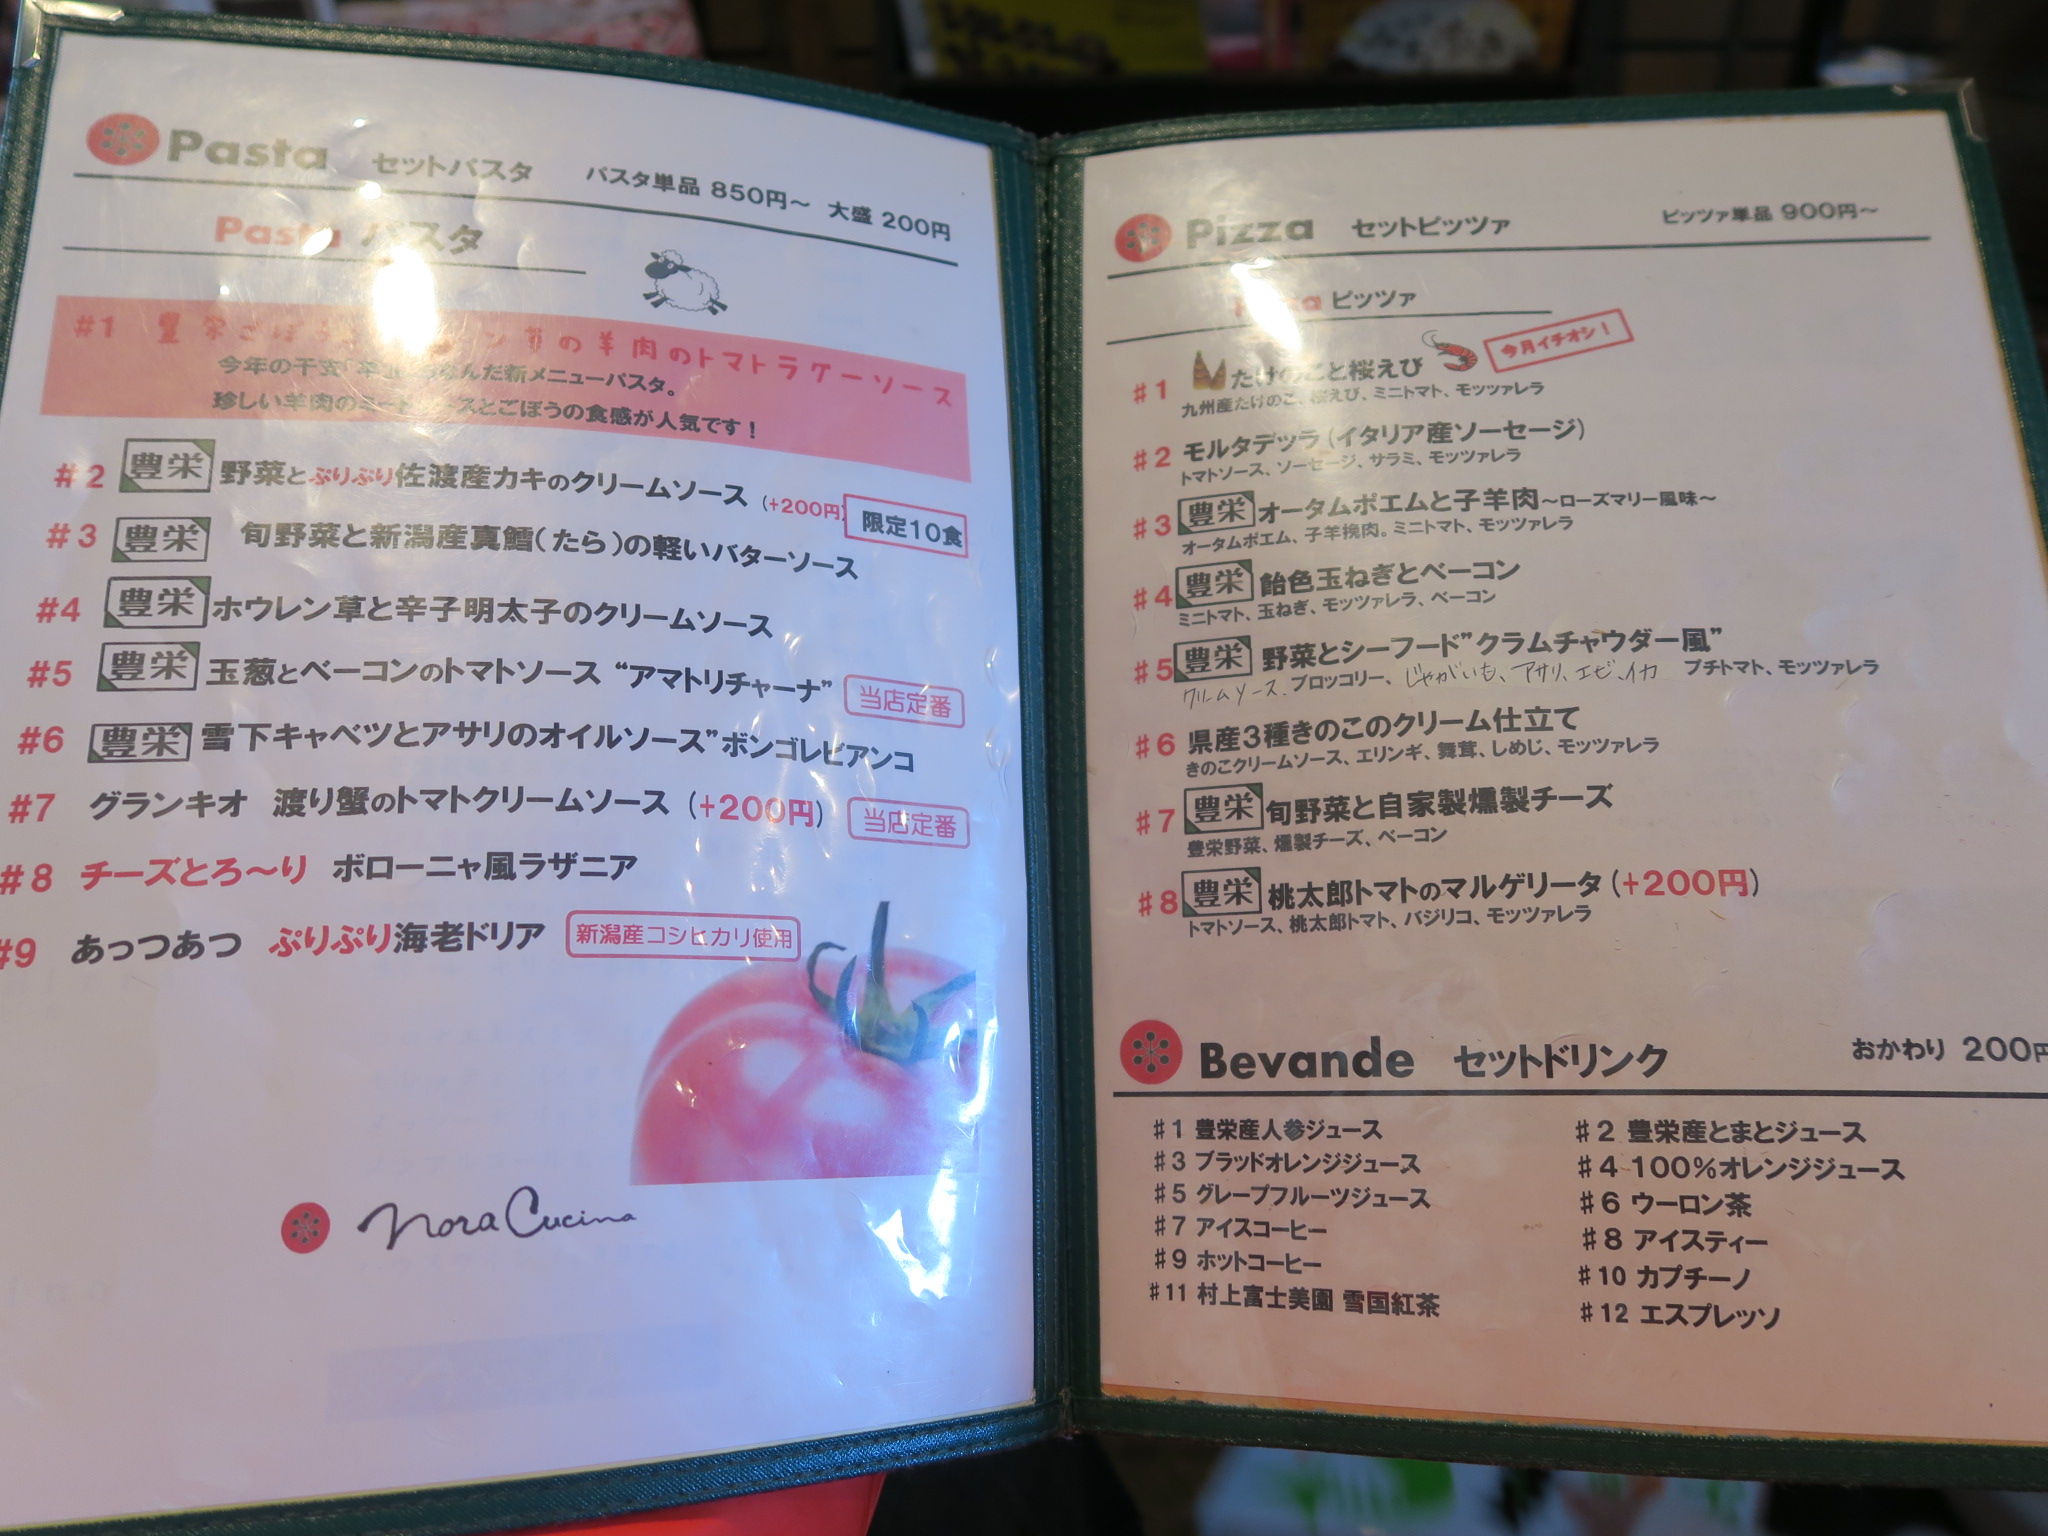 Pasta セットパスタ パスタ単品 850円～ 大盛 200円
Pasta パスタ
#1 豊栄ごぼう 草の羊肉のトマトラグーソース
今年の干支 ちなんだ新メニューパスタ。
珍しい羊肉のミートソースとごぼうの食感が人気です！
#2 豊栄 野菜とぷりぷり佐渡産カキのクリームソース (+200円) 限定10食
#3 豊栄 旬野菜と新潟産真鱈(たら)の軽いバターソース
#4 豊栄 ホウレン草と辛子明太子のクリームソース
#5 豊栄 玉葱とベーコンのトマトソース “アマトリチャーナ” 当店定番
#6 豊栄 雪下キャベツとアサリのオイルソース”ボンゴレビアンコ
#7 グランキオ 渡り蟹のトマトクリームソース (+200円) 当店定番
#8 チーズとろ～り ボローニャ風ラザニア
#9 あっつあつ ぷりぷり海老ドリア 新潟産コシヒカリ使用
nora Cucina
Pizza セットピッツァ ピッツァ単品 900円～
Pizza ピッツァ
#1 たけのこと桜えび 今月イチオシ！
九州産たけのこ、桜えび、ミニトマト、モッツァレラ
#2 モルタデッラ(イタリア産ソーセージ)
トマトソース、ソーセージ、サラミ、モッツァレラ
#3 豊栄 オータムポエムと子羊肉～ローズマリー風味～
オータムポエム、子羊挽肉。ミニトマト、モッツァレラ
#4 豊栄 飴色玉ねぎとベーコン
ミニトマト、玉ねぎ、モッツァレラ、ベーコン
#5 豊栄 野菜とシーフード”クラムチャウダー風”
クリームソース、ブロッコリー、じゃがいも、アサリ、エビ、イカ プチトマト、モッツァレラ
#6 県産3種きのこのクリーム仕立て
きのこクリームソース、エリンギ、舞茸、しめじ、モッツァレラ
#7 豊栄 旬野菜と自家製燻製チーズ
豊栄野菜、燻製チーズ、ベーコン
#8 豊栄 桃太郎トマトのマルゲリータ(+200円)
トマトソース、桃太郎トマト、バジリコ、モッツァレラ
Bevande セットドリンク おかわり 200円
#1 豊栄産人参ジュース #2 豊栄産とまとジュース
#3 ブラッドオレンジジュース #4 100%オレンジジュース
#5 グレープフルーツジュース #6 ウーロン茶
#7 アイスコーヒー #8 アイスティー
#9 ホットコーヒー #10 カプチーノ
#11 村上富士美園 雪国紅茶 #12 エスプレッソ